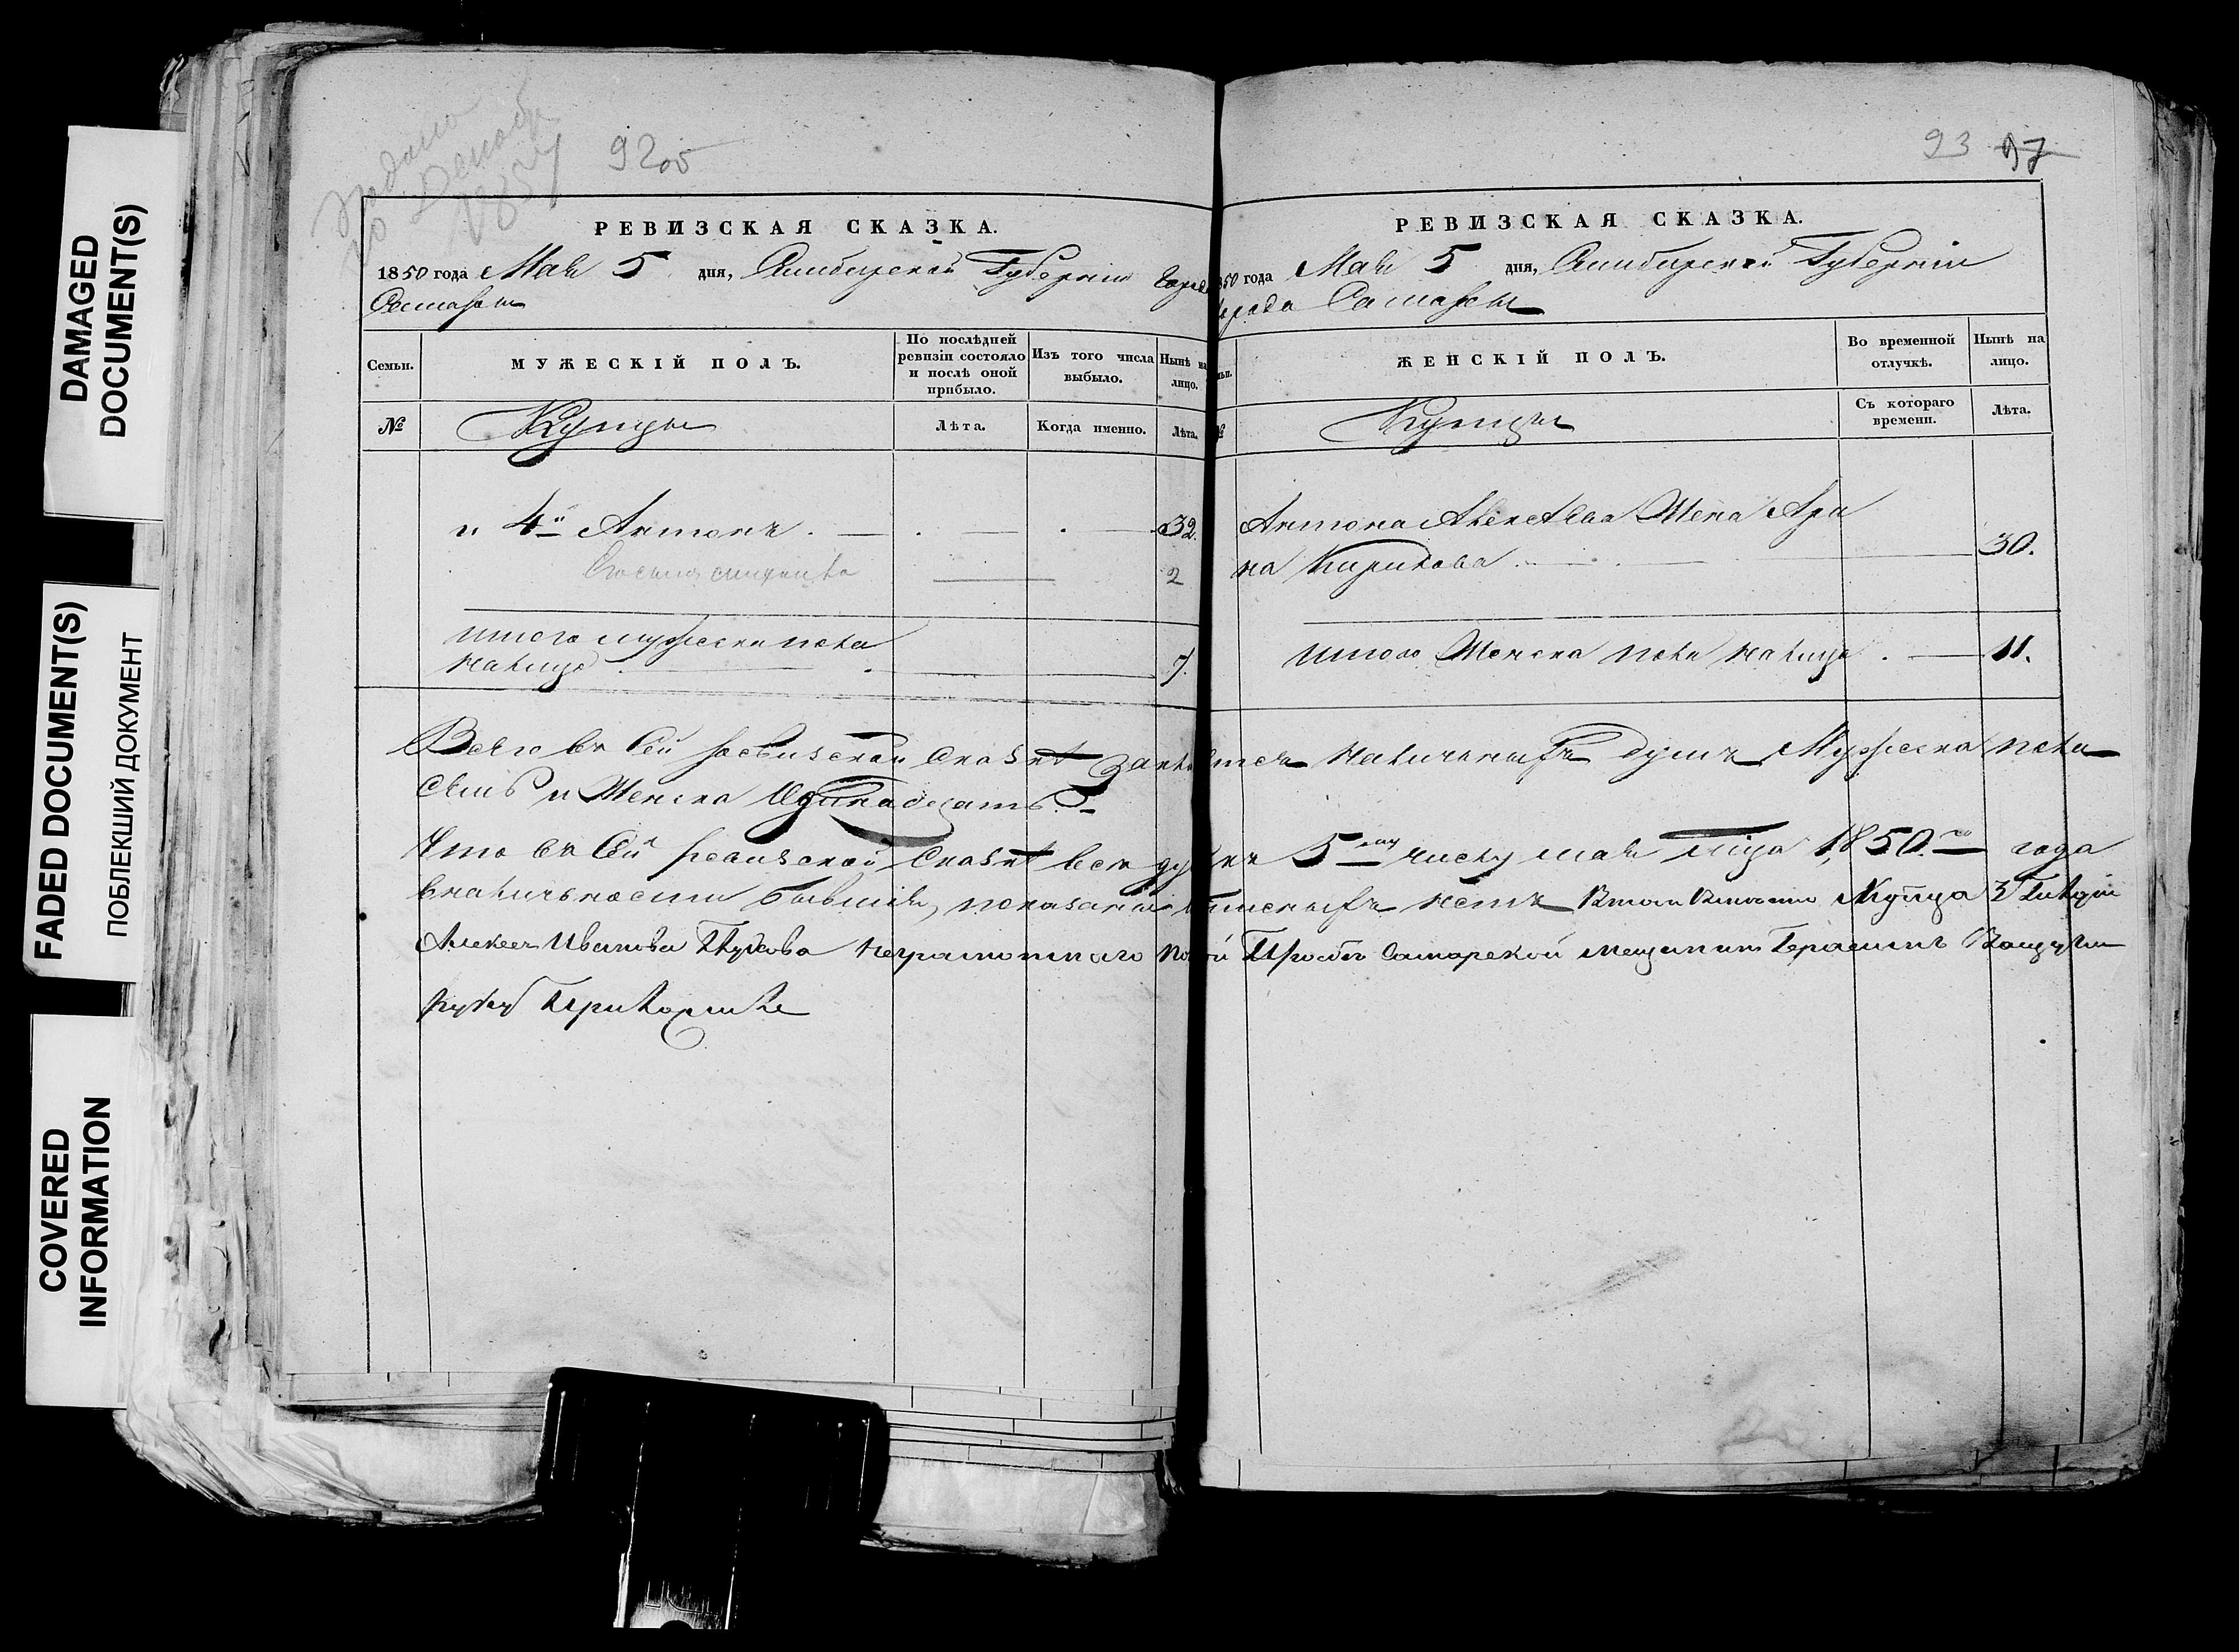 DAMAGED
DOCUMENT(S)
FADED DOCUMENT(S)
ПОБЛЕКШИЙ ДОКУМЕНТ
COVERED
INFORMATION
92об
РЕВИЗСКАЯ СКАЗКА.
1850 года Маія 5 дня, Симбирской Губерніи Города
Самары
Семьи.
МУЖЕСКІЙ ПОЛЪ.
По послѣдней
ревизіи состояло
и послѣ оной
прибыло.
Изъ того числа
выбыло.
Нынѣ на
лицо.
№
Купцы
Лѣта.
Когда именно.
Лѣта.
и 4й Антонъ
32.
2
итого мужеска пола
налицо
7.
93 97
РЕВИЗСКАЯ СКАЗКА.
50 года Маія 5 дня, Симбирской Губерніи
города Самары
ЖЕНСКІЙ ПОЛЪ.
Во временной
отлучкѣ.
Нынѣ на
лицо.
Купцы
Съ котораго
времени.
Лѣта.
Антона Алексѣева Жена Ари
на Кирилова
30.
итого Женска пола налицо
11.
Всего въ Сей ревизской Сказкѣ наличныхъ душъ Мужеска пола
Семь и Женска Одинадцать
Что въ Сей ревизской Сказкѣ все души къ 5му числу маія 1850го года
вналичьности бывшія, показаны нетъ Купца 3 Гилдіи
Алексея Иванова неграмотнаго Прозбе Самарской мещанинъ Герасимъ
руку Приложилъ